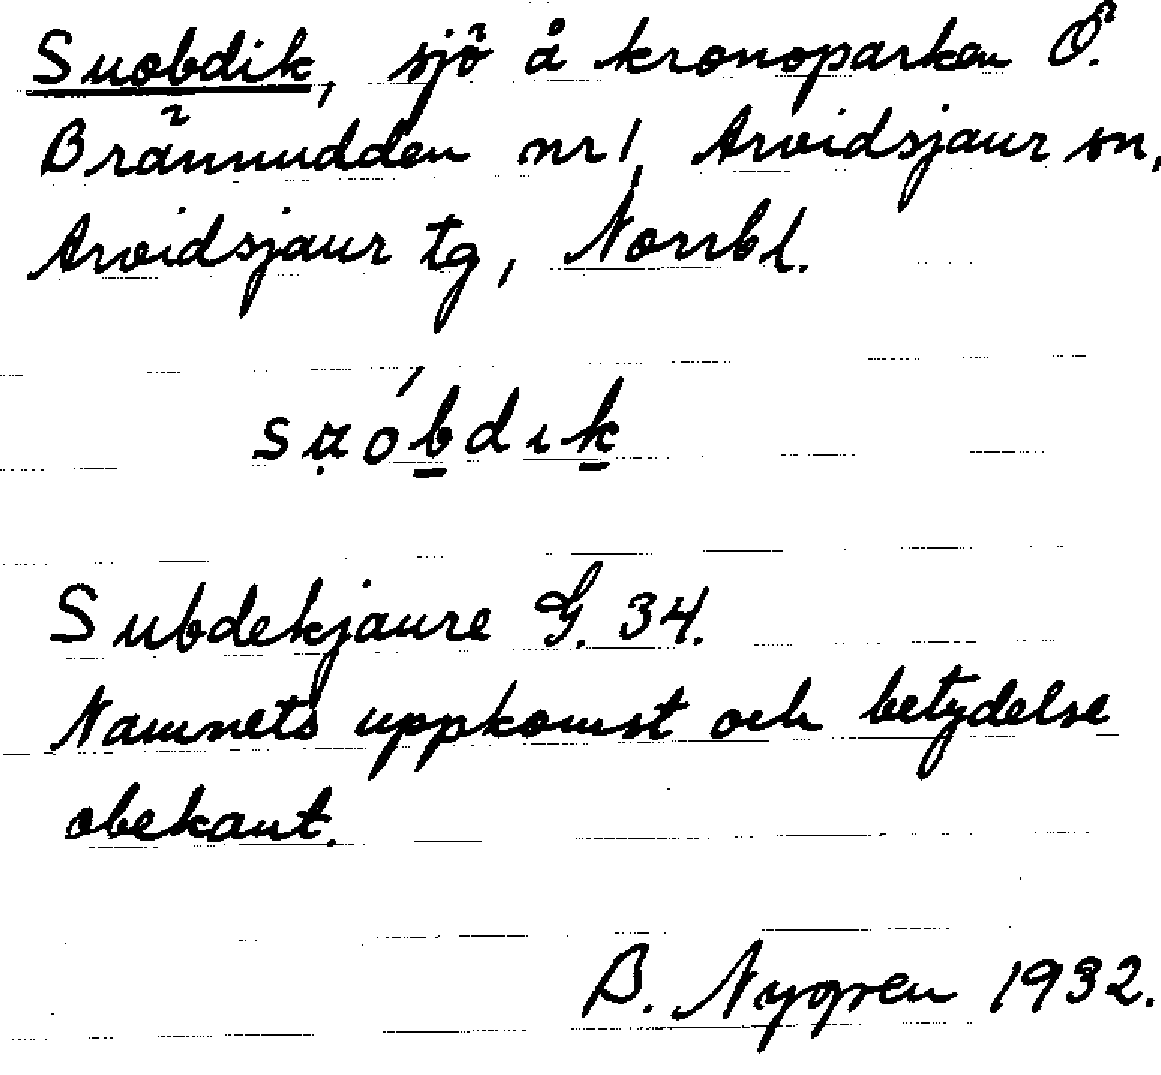 Suobdik, sjö å kronoparken Ö.
Brännudden nr 1, Arvidsjaur sn,
Arvidsjaur tg, Norrbl.
Subdekjaure G. 34.
Namnets uppkomst och betydelse
obekant.
B. Nygren 1932.